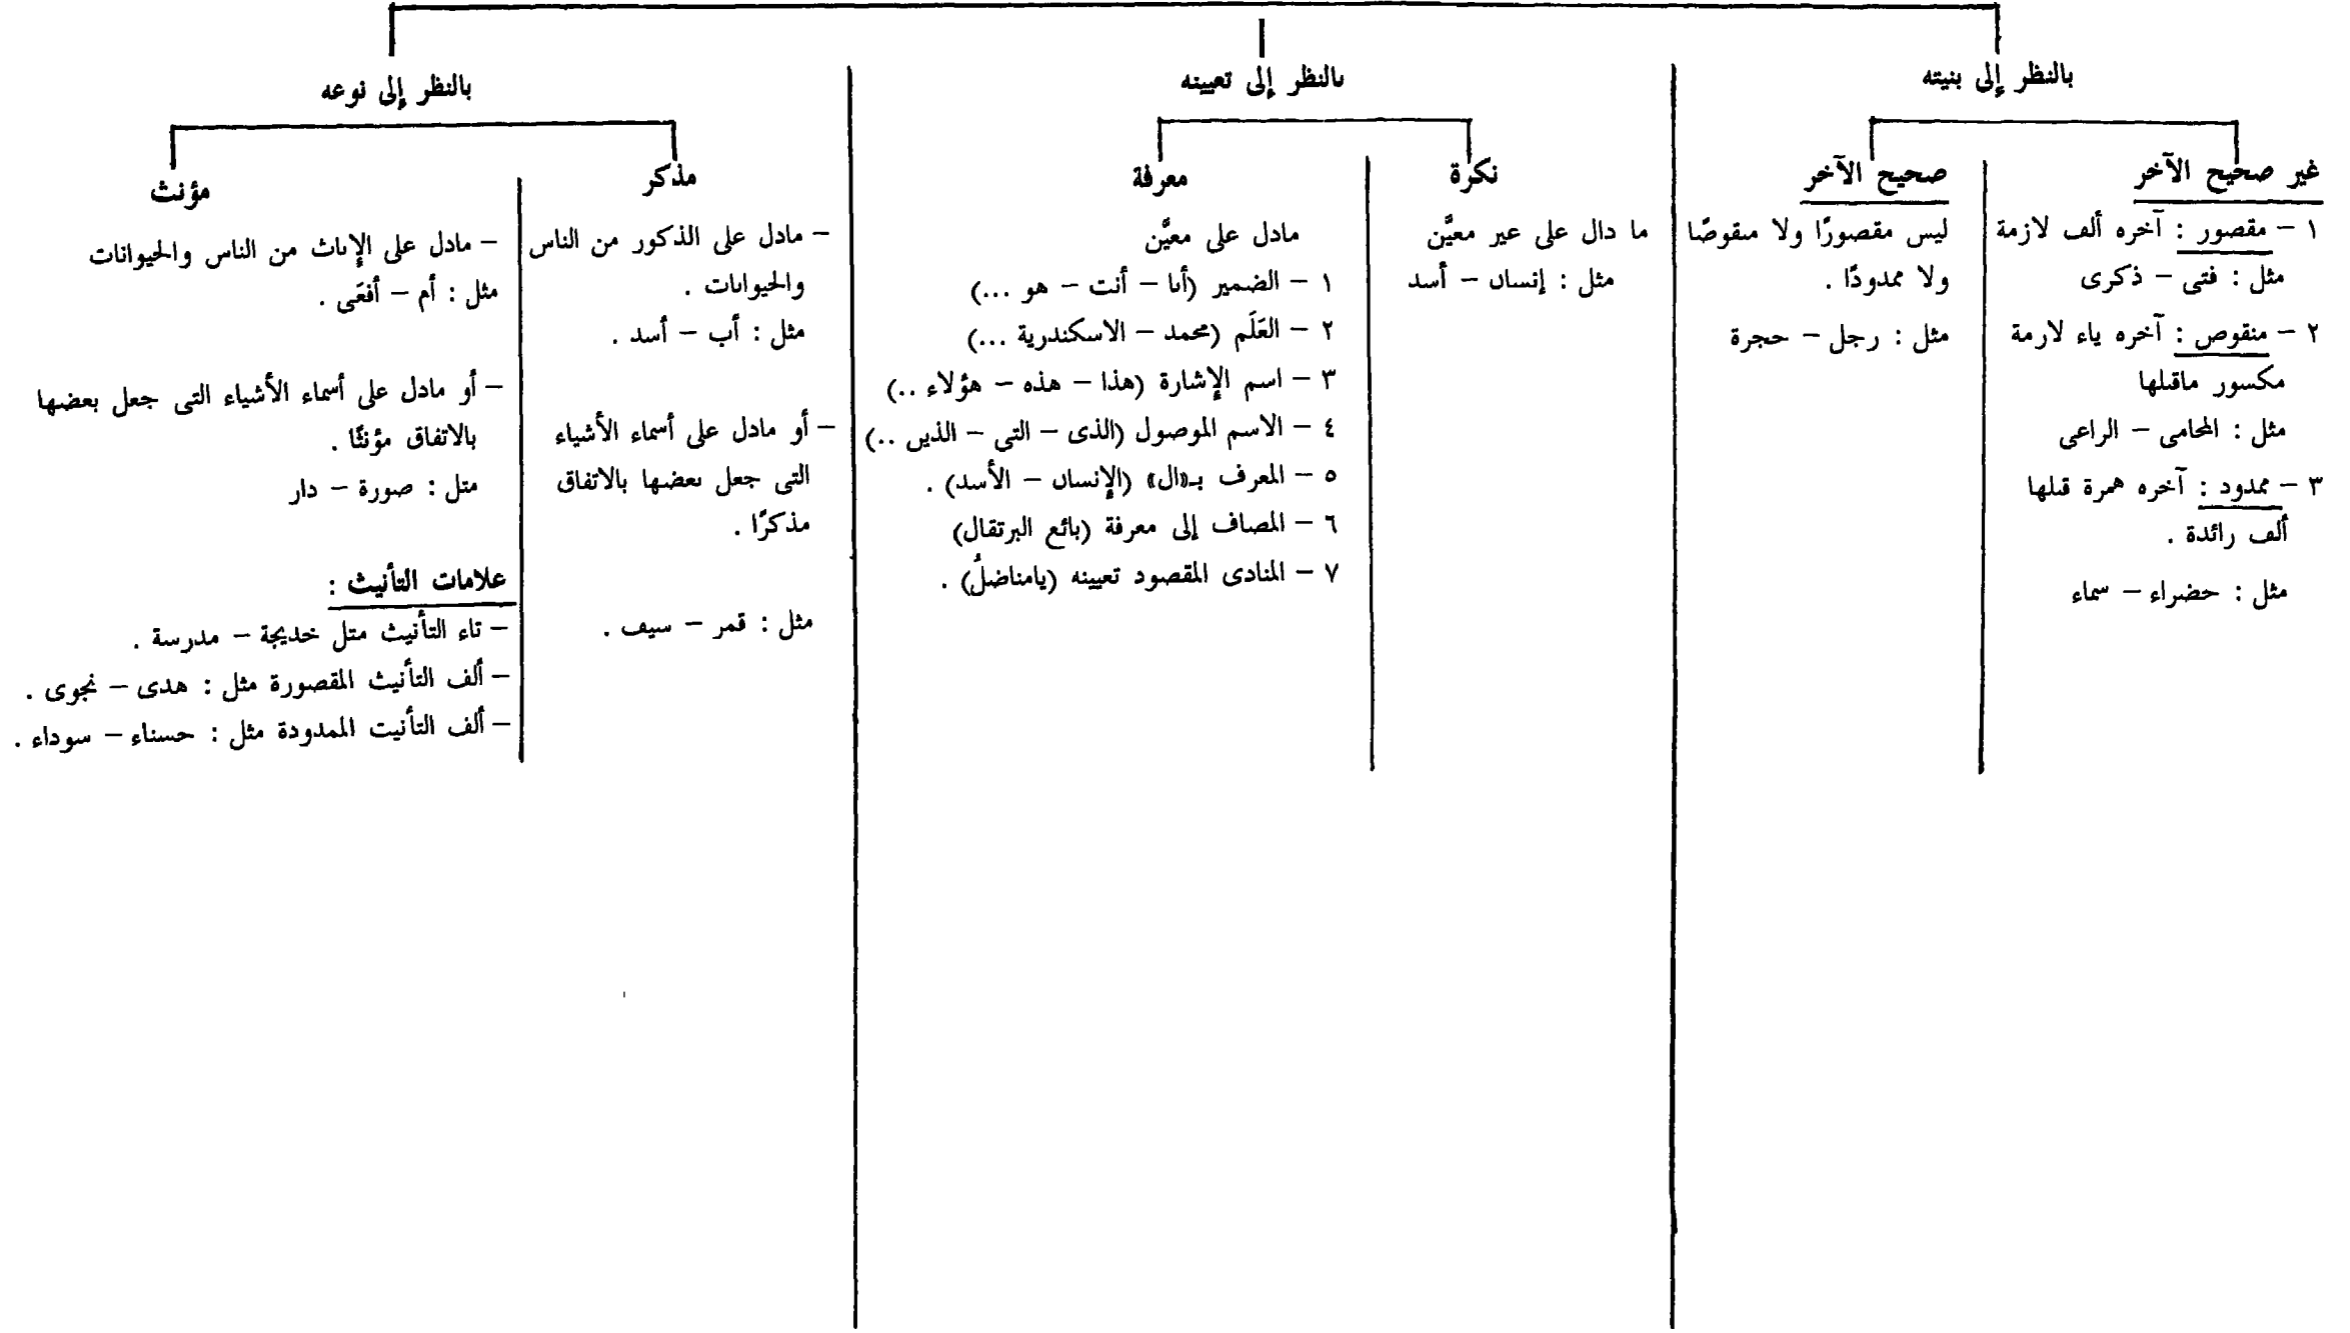 بالنظر إلى بنيته
غير صحيح الآخر
١ – مقصور : آخره ألف لازمة
مثل : فتى – ذكرى
٢ – منقوص : آخره ياء لازمة
مكسور ماقبلها
مثل : المحامى – الراعى
٣ – ممدود : آخره همزة قبلها
ألف زائدة .
مثل : خضراء – سماء
صحيح الآخر
ليس مقصورًا ولا منقوصًا
ولا ممدودًا .
مثل : رجل – حجرة
بالنظر إلى تعيينه
نكرة
ما دال على غير معيَّن
مثل : إنسان – أسد
معرفة
مادل على معيَّن
١ – الضمير (أنا – أنت – هو ...)
٢ – العَلَم (محمد – الاسكندرية ...)
٣ – اسم الإشارة (هذا – هذه – هؤلاء ..)
٤ – الاسم الموصول (الذى – التى – الذين ..)
٥ – المعرف بـ«ال» (الإنسان – الأسد) .
٦ – المضاف إلى معرفة (بائع البرتقال)
٧ – المنادى المقصود تعيينه (يامناضلُ) .
بالنظر إلى نوعه
مذكر
– مادل على الذكور من الناس
والحيوانات .
مثل : أب – أسد .
– أو مادل على أسماء الأشياء
التى جعل بعضها بالاتفاق
مذكرًا .
مثل : قمر – سيف .
مؤنث
– مادل على الإناث من الناس والحيوانات
مثل : أم – أفعَى .
– أو مادل على أسماء الأشياء التى جعل بعضها
بالاتفاق مؤنثًا .
مثل : صورة – دار
علامات التأنيث :
– تاء التأنيث مثل خديجة – مدرسة .
– ألف التأنيث المقصورة مثل : هدى – نجوى .
– ألف التأنيث الممدودة مثل : حسناء – سوداء .